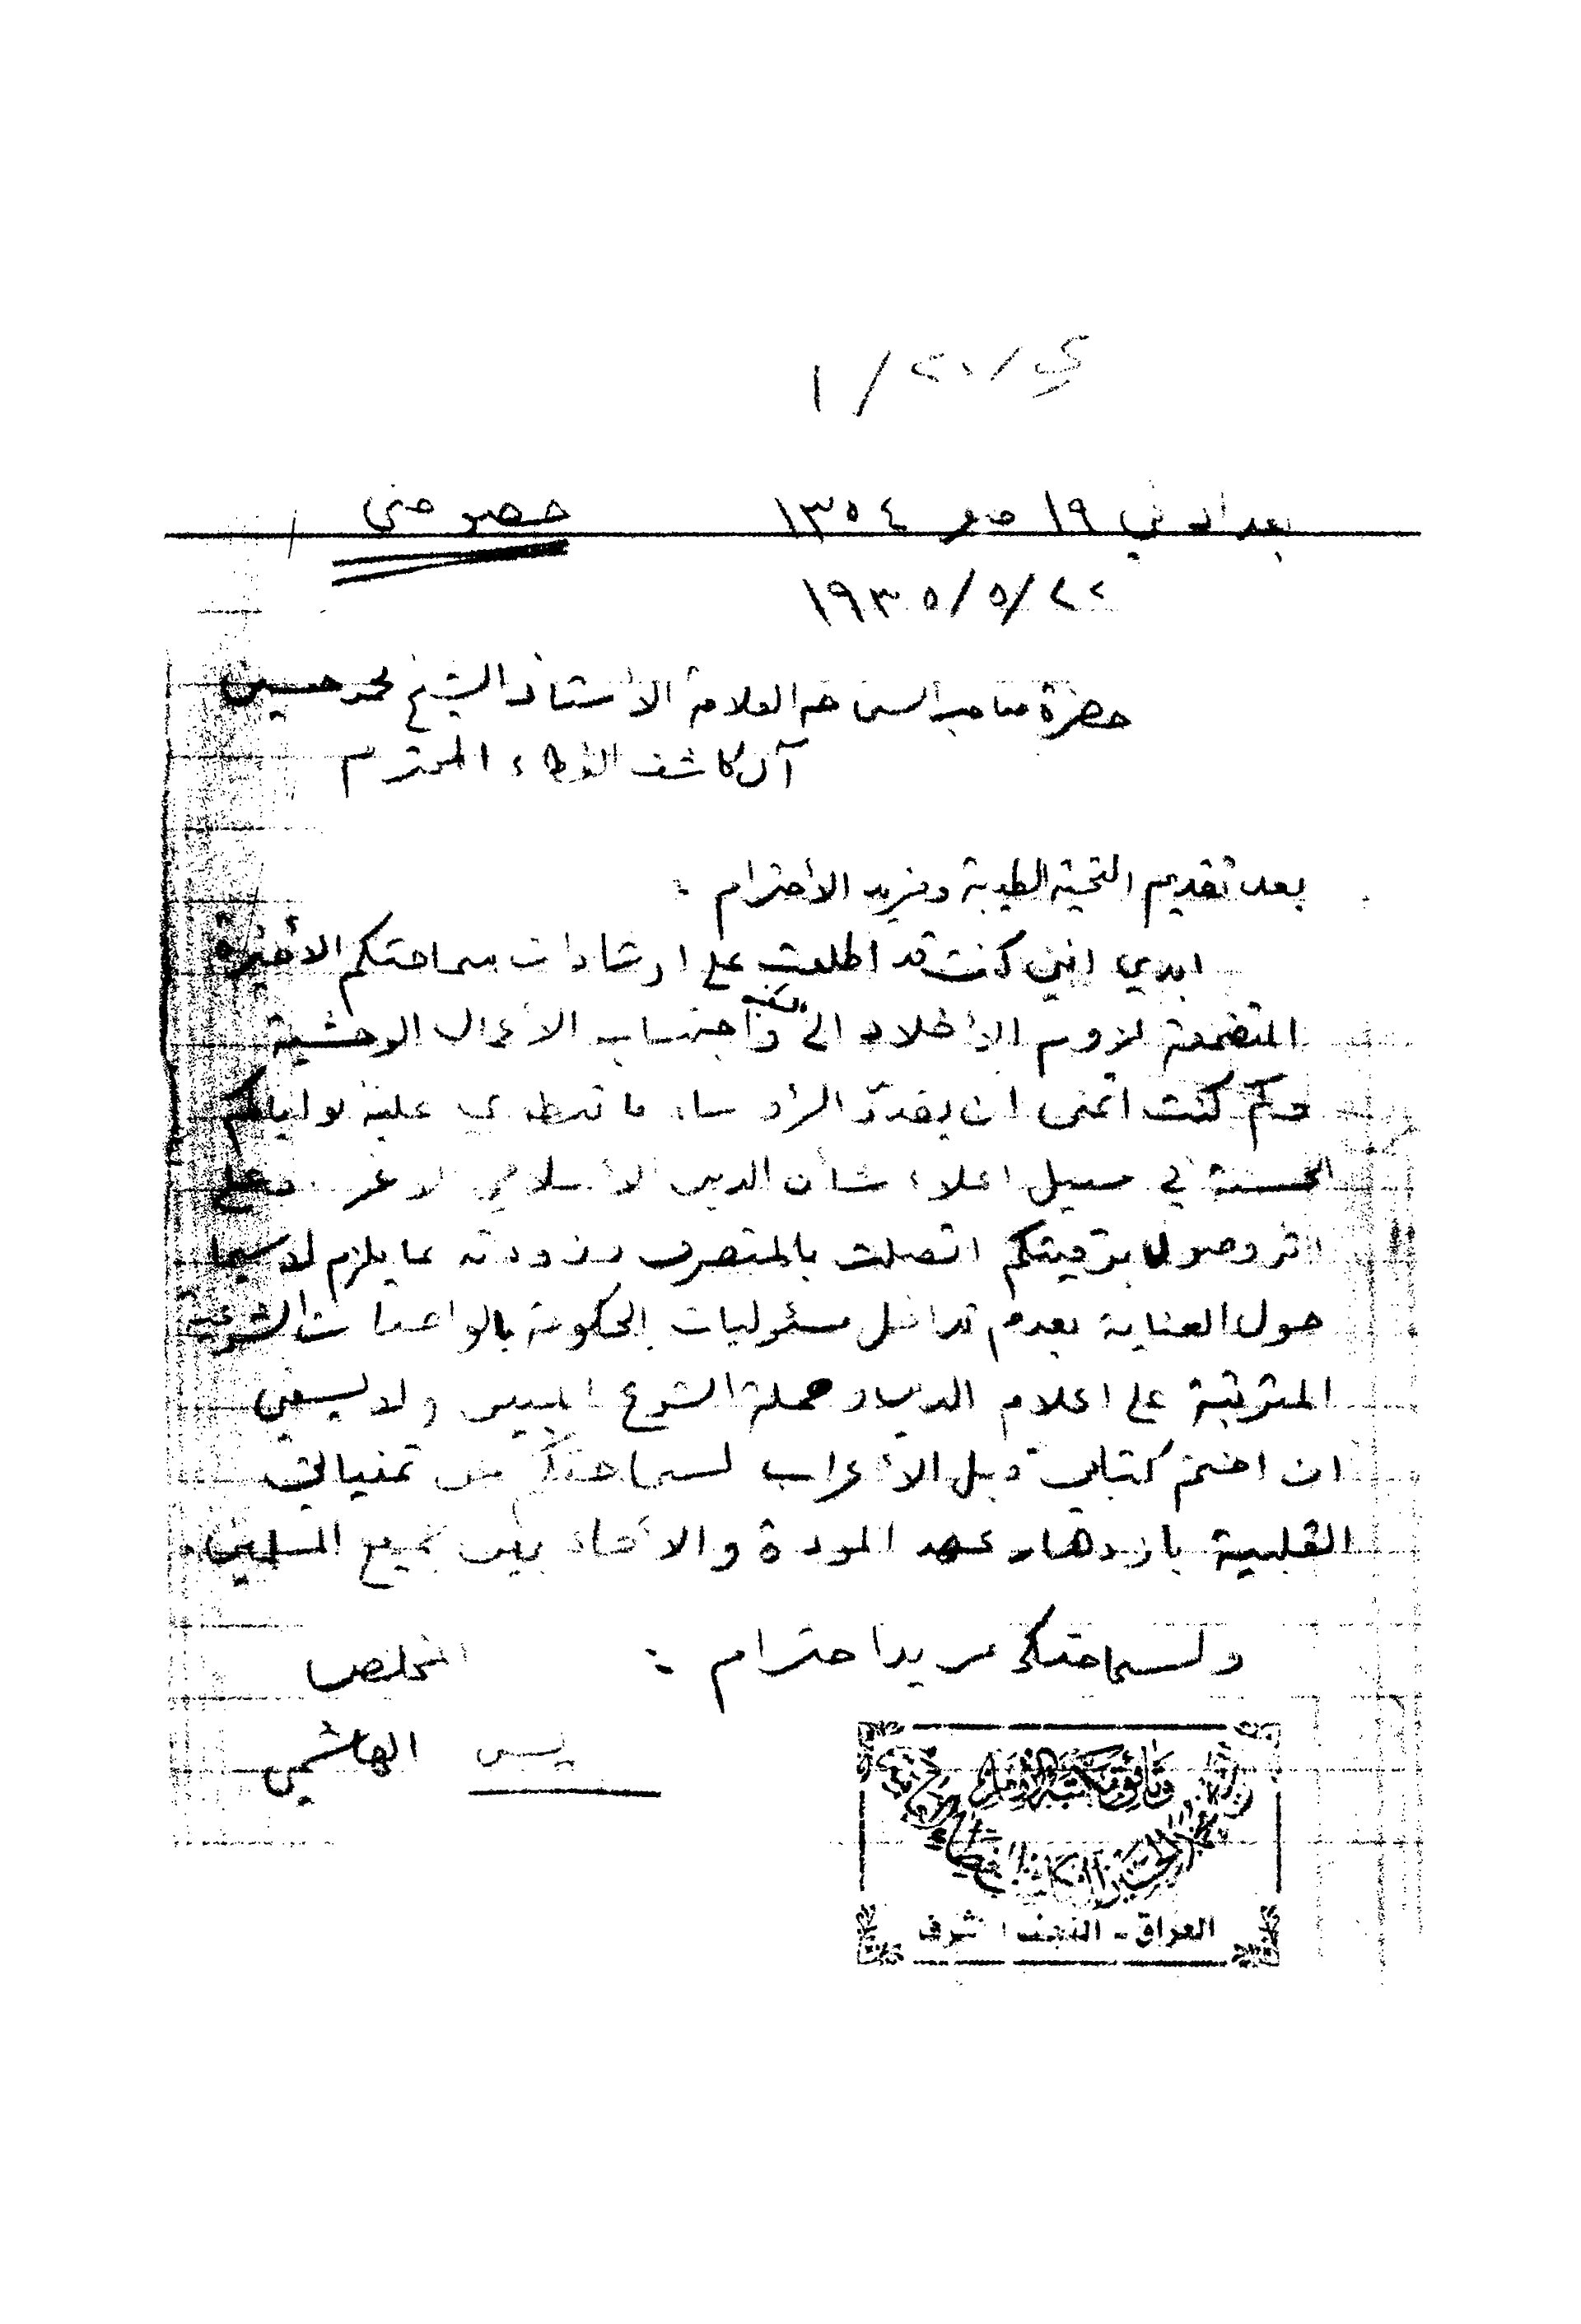 بغداد في ١٩ صفر ١٣٥٤
خصوصي
٢٢/٥/١٩٣٥
حضرة صاحب السماحة العلامة الأستاذ الشيخ محمد حسين
آل كاشف الغطاء المحترم
بعد تقديم التحية الطيبة ومزيد الأحترام :
ابدي انني كنت قد اطلعت على ارشادات سماحتكم الأخيرة
المتضمنة لزوم الأخلاد الى السكينة واجتناب الأعمال الوحشية
وكم كنت اتمنى ان يقدّر الرؤساء ما تنطوي عليه نواياكم
الحسنة في سبيل اعلاء شأن الدين الاسلامي وعلى
اثر وصول برقيتكم اتصلت بالمتصرف وزودته بما يلزم لا سيما
حول العناية بعدم تداخل مسئوليات الحكومة بالواجبات الشرعية
المترتبة على اعلام الدين وحملة الشرع المبين ولا يسعني
ان اختم كتابي قبل الأعراب لسماحتكم عن تمنياتي
القلبية بازدهار عهد المودة والأتحاد بين جميع المسلمين
ولسماحتكم مزيد احترام :
المخلص
يس الهاشمي
العراق - النجف الاشرف